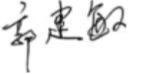 郭建敏